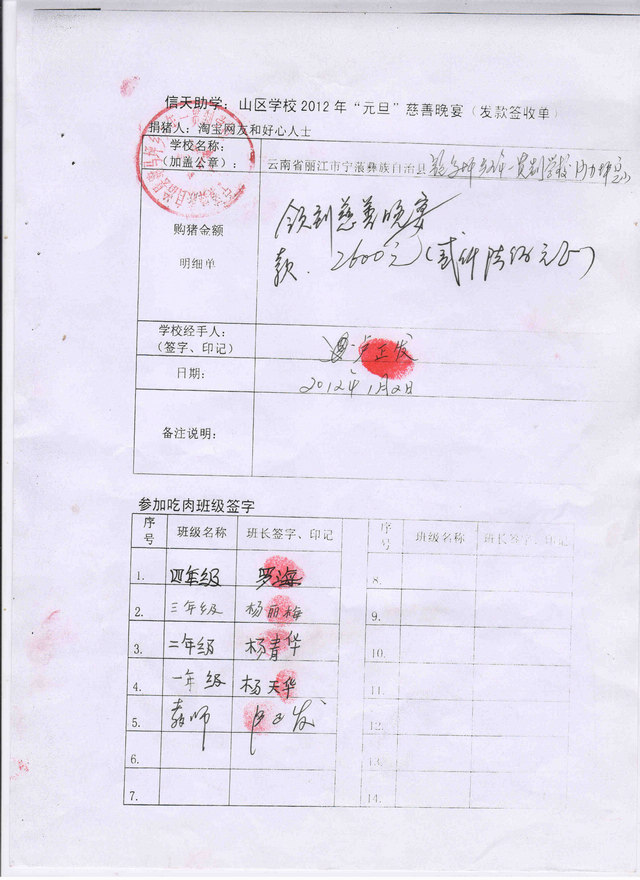 信天助学：山区学校2012年“元旦”慈善晚宴（发款签收单）
捐猪人：淘宝网友和好心人士
学校名称：
（加盖公章）：
云南省丽江市宁蒗彝族自治县
购猪金额
明细单
领到慈善晚宴
款．2600元（贰仟陆佰元正）
学校经手人：
（签字、印记）
卢正发
日期：
2012年1月2日
备注说明：
参加吃肉班级签字
序号 班级名称 班长签字、印记 序号 班级名称 班长签字、印记
1. 四年级 罗海 8.
2. 三年级 杨丽梅 9.
3. 二年级 杨青华 10.
4. 一年级 杨天华 11.
5. 教师 卢正发 12.
6. 13.
7. 14.